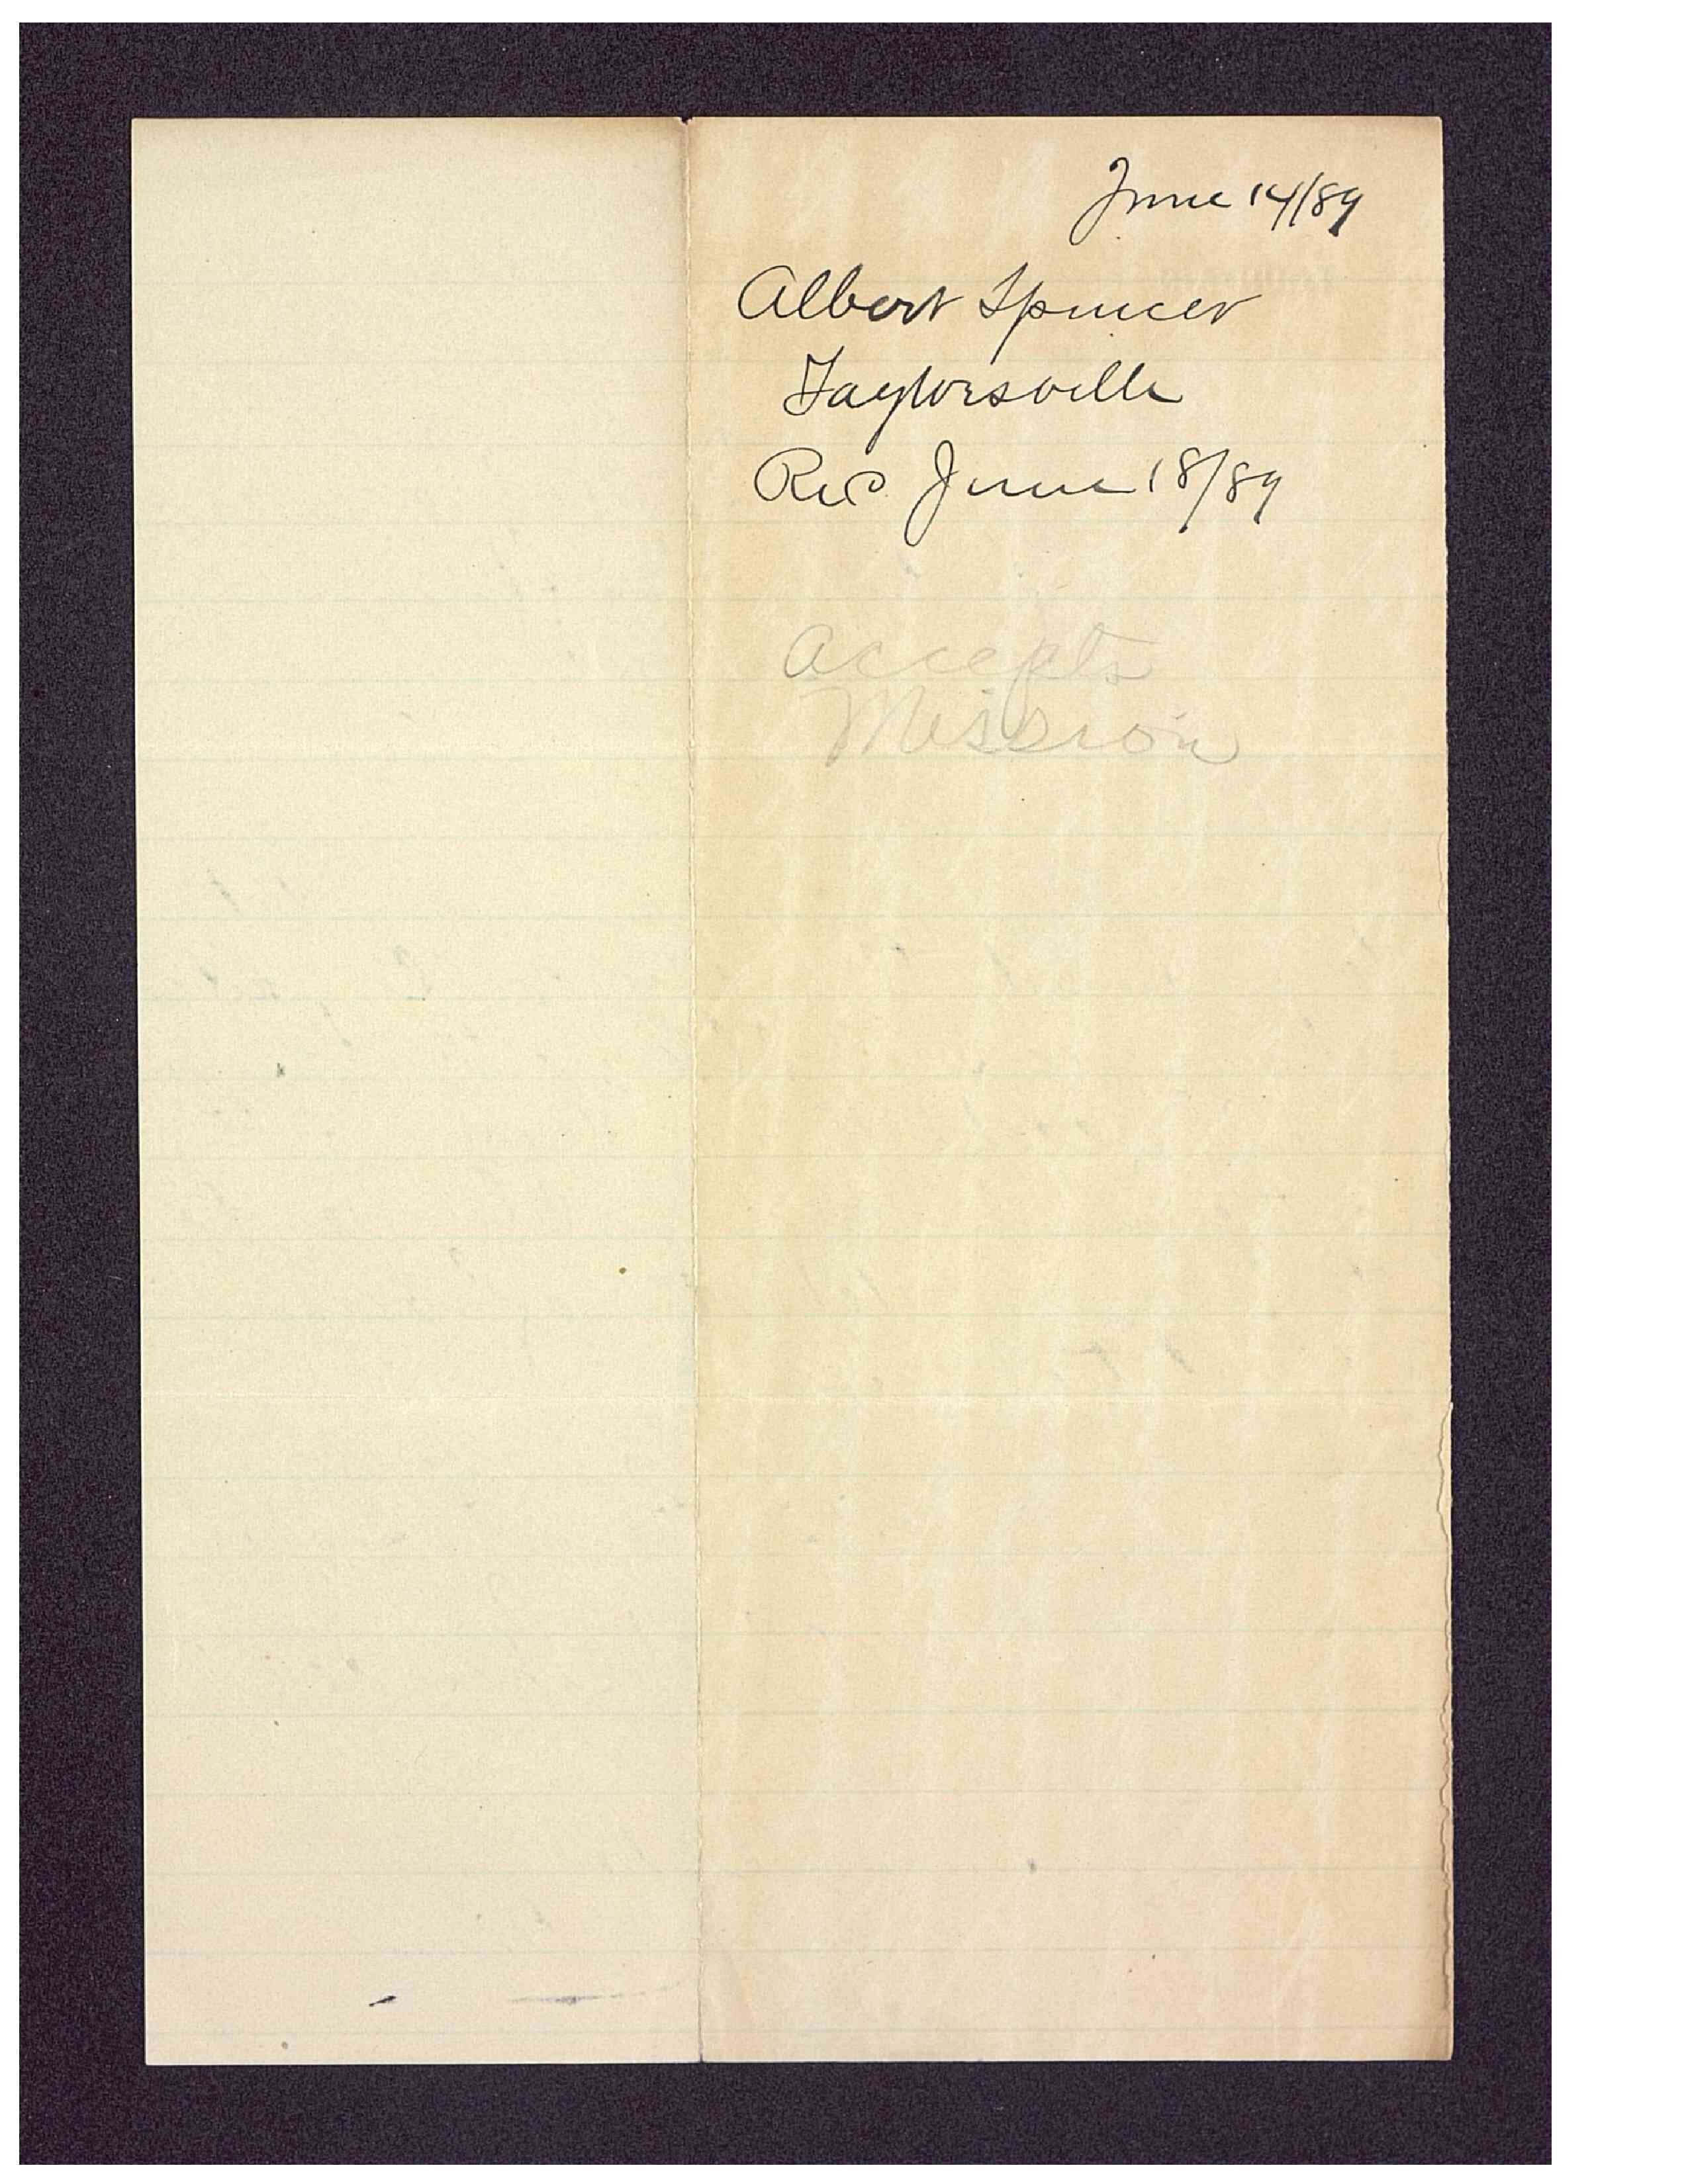 June 14/89
Albert Spencer
Taylorsville
Rec June 18/89
Accepts
Mission